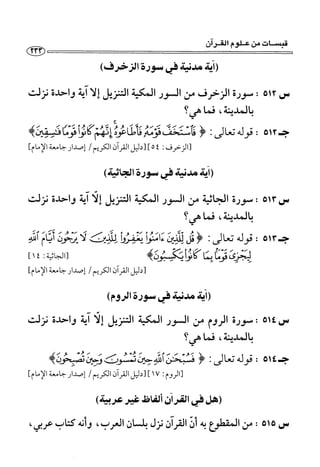 قبسات من علوم القرآن
٢٣٣
(آية مدنية في سورة الزخرف)
س ٥١٢ : سورة الزخرف من السور المكية التنزيل إلا آية واحدة نزلت
بالمدينة، فما هي؟
جـ ٥١٢ : قوله تعالى: ﴿ فَاسْتَخَفَّ قَوْمَهُ فَأَطَاعُوهُ إِنَّهُمْ كَانُوا قَوْمًا فَاسِقِينَ﴾
[الزخرف: ٥٤] [دليل القرآن الكريم/ إصدار جامعة الإمام]
(آية مدنية في سورة الجاثية)
س ٥١٣ : سورة الجاثية من السور المكية التنزيل إلّا آية واحدة نزلت
بالمدينة، فما هي؟
جـ ٥١٣ : قوله تعالى: ﴿ قُل لِّلَّذِينَ ءَامَنُوا يَغْفِرُوا لِلَّذِينَ لَا يَرْجُونَ أَيَّامَ اللَّهِ
لِيَجْزِيَ قَوْمًا بِمَا كَانُوا يَكْسِبُونَ﴾ [الجاثية: ١٤]
[دليل القرآن الكريم/ إصدار جامعة الإمام]
(آية مدنية في سورة الروم)
س ٥١٤ : سورة الروم من السور المكية التنزيل إلّا آية واحدة نزلت
بالمدينة، فما هي؟
جـ ٥١٤ : قوله تعالى: ﴿ فَسُبْحَانَ اللَّهِ حِينَ تُمْسُونَ وَحِينَ تُصْبِحُونَ﴾
[الروم: ١٧] [دليل القرآن الكريم/ إصدار جامعة الإمام]
(هل في القرآن ألفاظ غير عربية)
س ٥١٥ : من المقطوع به أنّ القرآن نزل بلسان العرب، وأنه كتاب عربي،